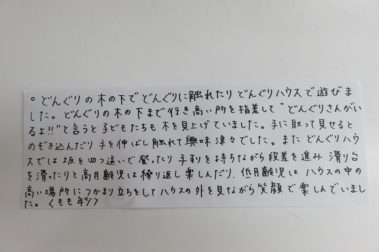 。どんぐりの木の下でどんぐりに触れたりどんぐりハウスで遊びま
した。どんぐりの木の下まで行き高い所を指差して"どんぐりさんがい
るよ!!"と言うと子どもたちも木を見上げていました。手に取って見せると
のぞき込んだり手を伸ばし触れて興味津々でした。またどんぐりハウ
スでは坂を四つ這いで登ったり手すりを持ちながら段差を進み滑り台
を滑ったりと高月齢児は繰り返し楽しんだり、低月齢児はハウスの中の
高い場所につかまり立ちをしてハウスの外を見ながら笑顔で楽しんでいまし
た。くもも